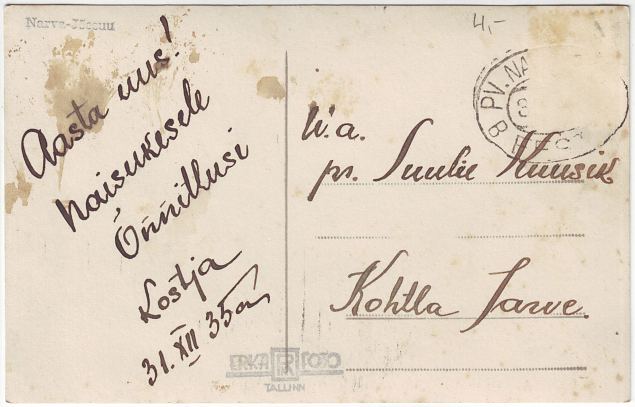 Narva-Jõesuu
4,-
Aasta uus!
Naisukesele
Õnnitlusi
Kostja
31. XII 35a
B PV. NA
EESTI
W.a.
pr. Kuusik
Kohtla Jarve.
ERKA FOTO
TALLINN